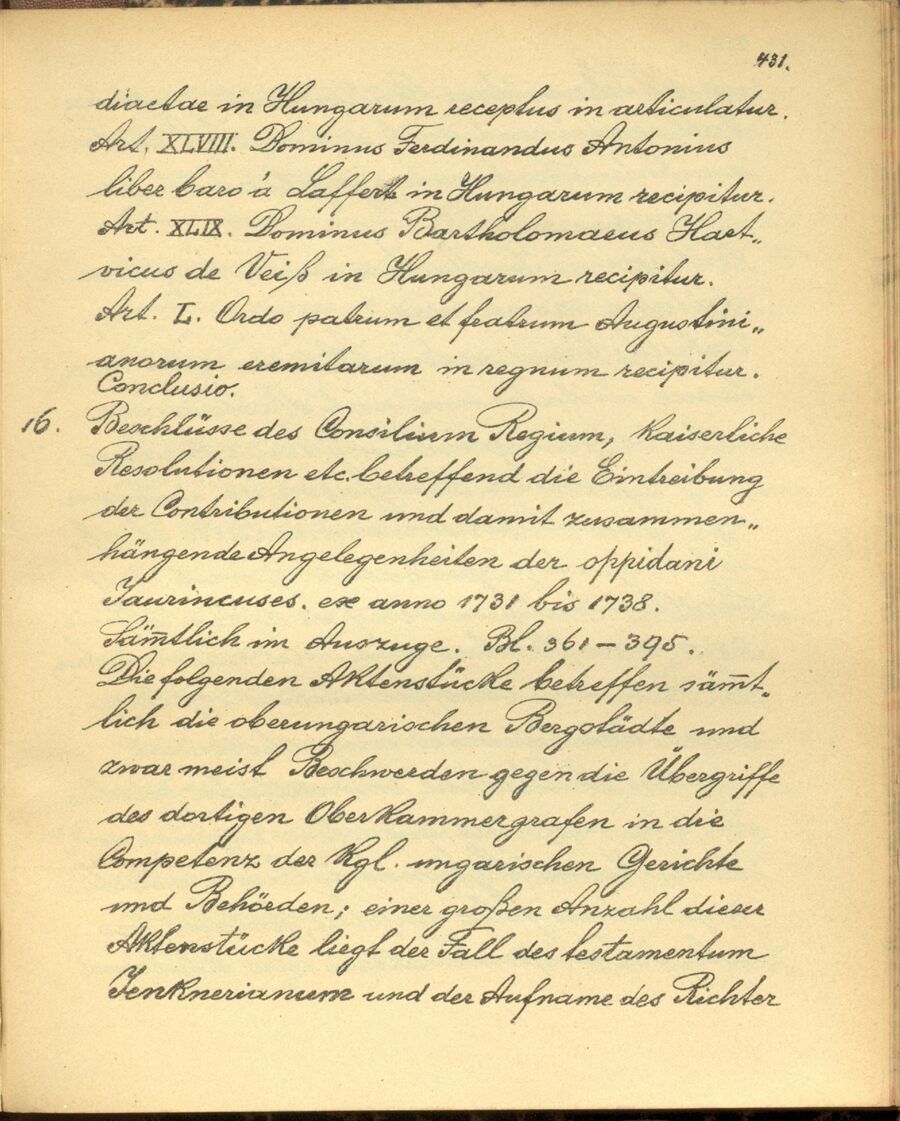 431.
diaetae in Hungarum receptus in articulatur.
Art. XLVIII. Dominus Ferdinandus Antonius
liber baro à Laffert in Hungarum recipitur.
Art. XLIX. Dominus Bartholomaeus Hart„
vicus de Veiß in Hungarum recipitur.
Art. L. Ordo patrum et fratrum Augustini„
anorum eremitarum in regnum recipitur.
Conclusio.
16. Beschlüsse des Consilium Regium, Kaiserliche
Resolutionen etc. betreffend die Eintreibung
der Contributionen und damit zusammen„
hängende Angelegenheiten der oppidani
Jaurincuses. ex anno 1731 bis 1738.
Sämtlich im Auszuge. Bl. 361–395.
Die folgenden Aktenstücke betreffen sämt„
lich die oberungarischen Bergstädte und
zwar meist Beschwerden gegen die Übergriffe
des dortigen Oberkammergrafen in die
Competenz der Kgl. ungarischen Gerichte
und Behörden; einer großen Anzahl dieser
Aktenstücke liegt der Fall des testamentum
Jenknerianum und der Aufname des Richter